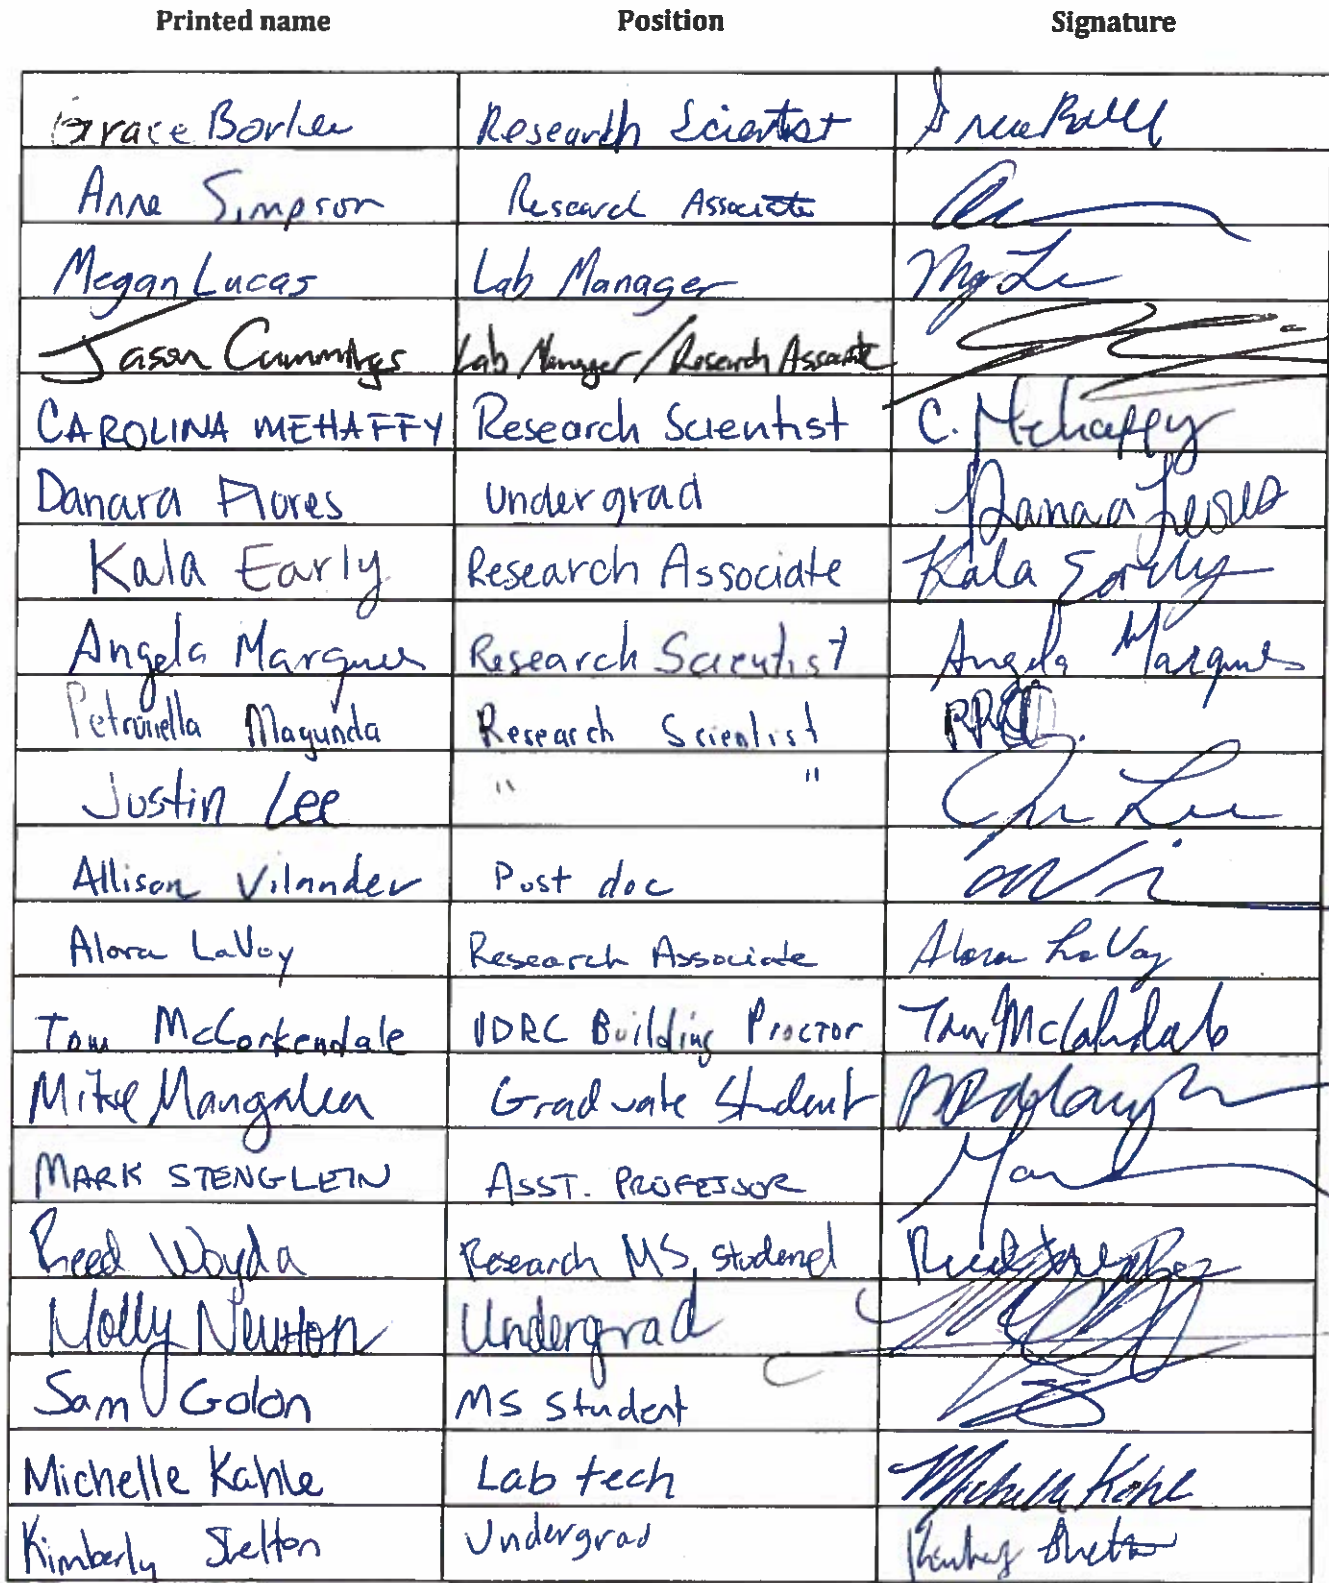 Printed name Position Signature
Grace Borlee Research Scientist
Anne Simpson Research Associate
Megan Lucas Lab Manager
Jason Cummings Lab Manager/Research Associate
CAROLINA MEHAFFY Research Scientist C. Mehaffy
Danara Flores Undergrad Danara Flores
Kala Early Research Associate Kala Early
Angela Marques Research Scientist Angela Marques
Petronella Magunda Research Scientist
Justin Lee " "
Allison Vilander Post doc
Alora LaVoy Research Associate Alora LaVoy
Tom McCorkendale IDRC Building Proctor
Mike Mangalea Graduate Student
MARK STENGLEIN ASST. PROFESSOR
Reed Woyda Research MS student
Molly Newton Undergrad
Sam Golon MS Student
Michelle Kahle Lab tech Michelle Kahle
Kimberly Shelton Undergrad Kimberly Shelton